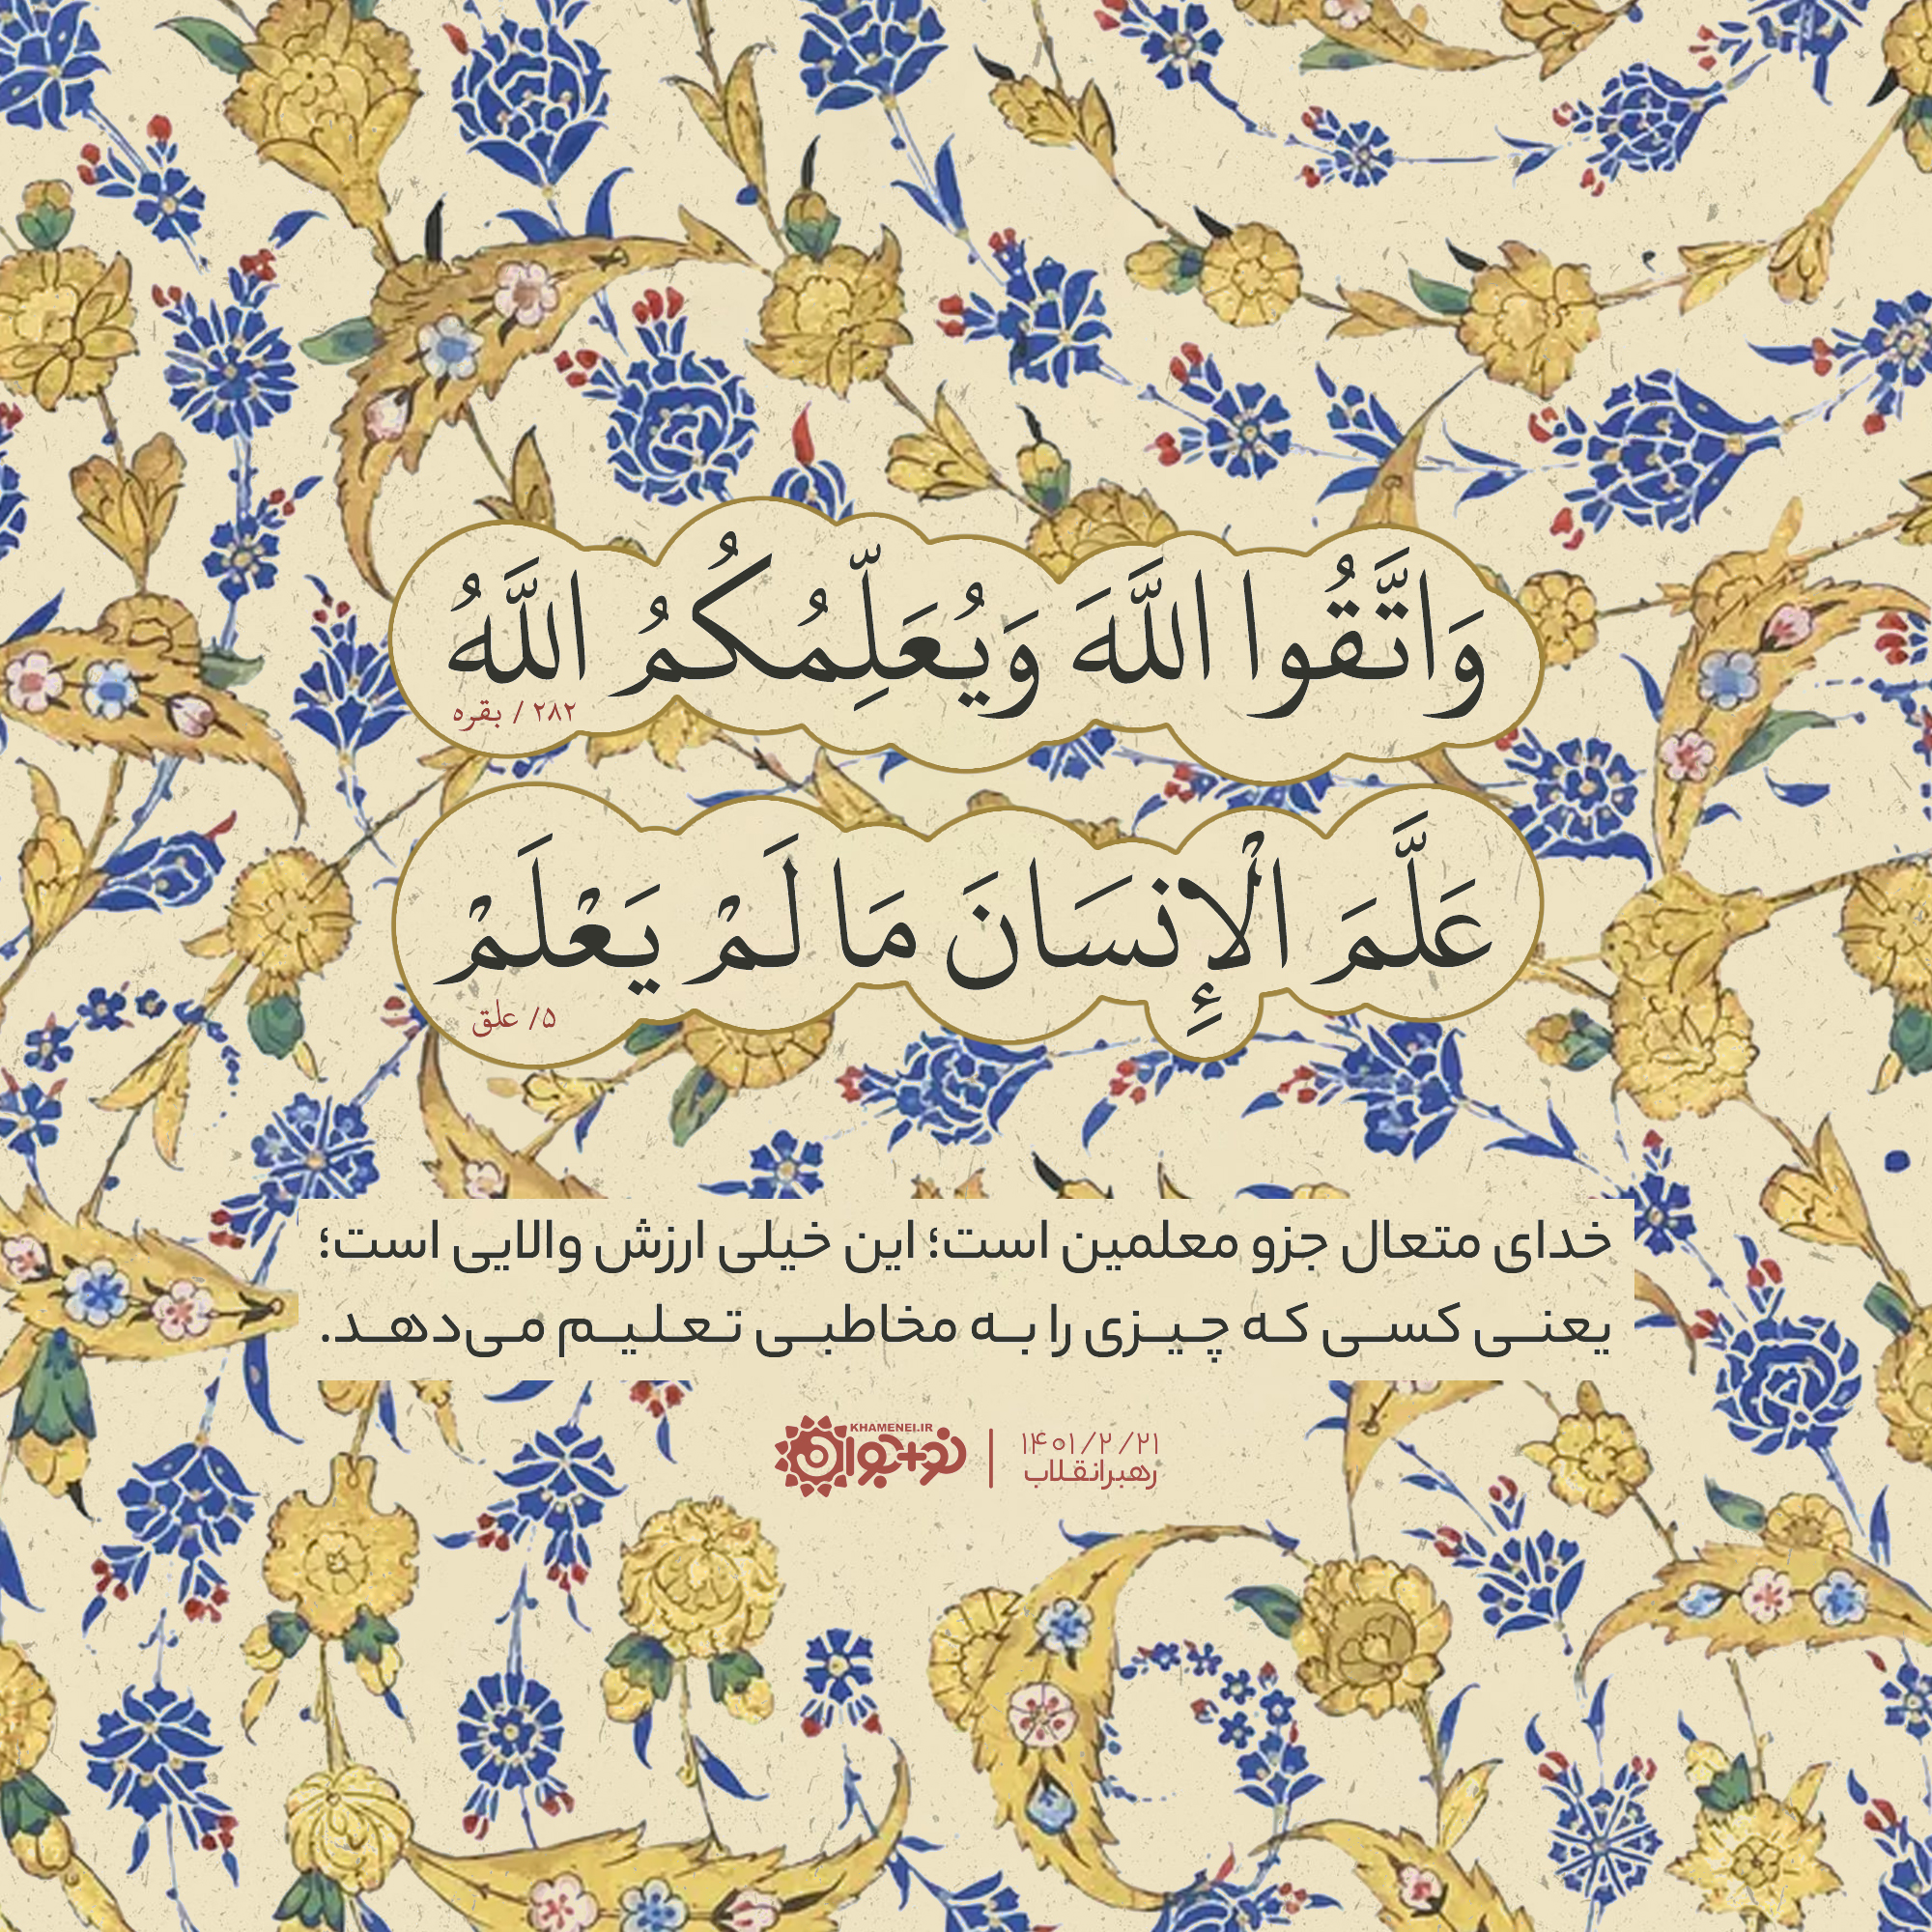 وَاتَّقُوا اللَّهَ وَيُعَلِّمُكُمُ اللَّهُ
۲۸۲ / بقره
عَلَّمَ الْإِنسَانَ مَا لَمْ يَعْلَمْ
۵/ علق
خدای متعال جزو معلمین است؛ این خیلی ارزش والایی است؛
یعنی کسی که چیزی را به مخاطبی تعلیم می‌دهد.
۱۴۰۱/۲/۲۱
رهبر انقلاب
KHAMENEI.IR
نو+جوان